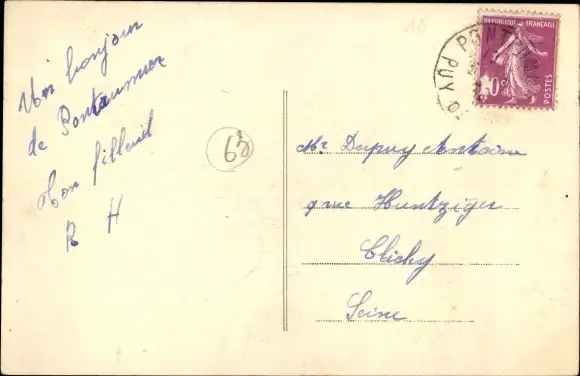 Un bonjour
de Pontaumur
Ton filleul
R H
63
10
RÉPUBLIQUE FRANÇAISE
POSTES
PONT
PUY
Mr Dupuy Antoine
9 rue Huntziger
Clichy
Seine